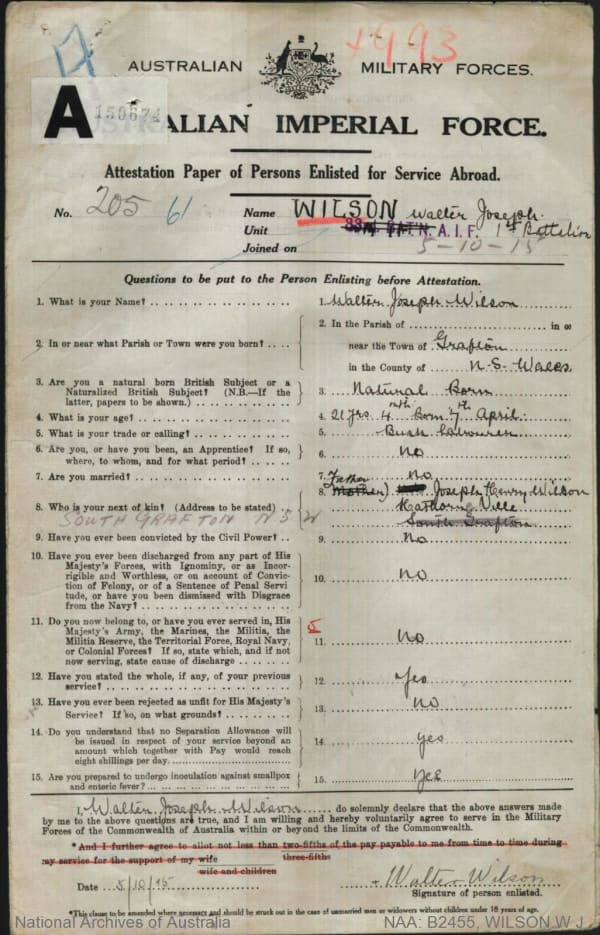 +993
AUSTRALIAN MILITARY FORCES.
A 159674
AUSTRALIAN IMPERIAL FORCE.
Attestation Paper of Persons Enlisted for Service Abroad.
No. 205 61 Name WILSON Walter Joseph.
Unit BAT'N. A.I.F. 1st Battalion
Joined on 5-10-15
Questions to be put to the Person Enlisting before Attestation.
1. What is your Name? 1. Walter Joseph Wilson
2. In or near what Parish or Town were you born? 2. In the Parish of in or
near the Town of Grafton
in the County of N.S. Wales
3. Are you a natural born British Subject or a
Naturalized British Subject? (N.B.—If the
latter, papers to be shown.) 3. Natural Born
4. What is your age? 4. 21 yrs 4 mth Born 7th April
5. What is your trade or calling? 5. Bush
6. Are you, or have you been, an Apprentice? If so,
where, to whom, and for what period? 6. No
7. Are you married? 7. No
8. Who is your next of kin? (Address to be stated) 8. Father (Mother) Joseph Henry Wilson
Ville
SOUTH GRAFTON N S W South Grafton
9. Have you ever been convicted by the Civil Power? 9. No
10. Have you ever been discharged from any part of His
Majesty's Forces, with Ignominy, or as Incor-
rigible and Worthless, or on account of Convic-
tion of Felony, or of a Sentence of Penal Servi
tude, or have you been dismissed with Disgrace
from the Navy? 10. No
11. Do you now belong to, or have you ever served in, His
Majesty's Army, the Marines, the Militia, the
Militia Reserve, the Territorial Force, Royal Navy,
or Colonial Forces? If so, state which, and if not
now serving, state cause of discharge 11. No
12. Have you stated the whole, if any, of your previous
service? 12. Yes
13. Have you ever been rejected as unfit for His Majesty's
Service? If so, on what grounds? 13. No
14. Do you understand that no Separation Allowance will
be issued in respect of your service beyond an
amount which together with Pay would reach
eight shillings per day 14. yes
15. Are you prepared to undergo inoculation against smallpox
and enteric fever? 15. Yes
I, Walter Joseph Wilson do solemnly declare that the above answers made
by me to the above questions are true, and I am willing and hereby voluntarily agree to serve in the Military
Forces of the Commonwealth of Australia within or beyond the limits of the Commonwealth.
* And I further agree to allot not less than two-fifths of the pay payable to me from time to time during
my service for the support of my wife three-fifths
wife and children
Date 5/10/15 + Walter Wilson
Signature of person enlisted.
*This clause to be amended where necessary and should be struck out in the case of unmarried men or widowers without children under 18 years of age.
National Archives of Australia NAA: B2455, WILSON W J